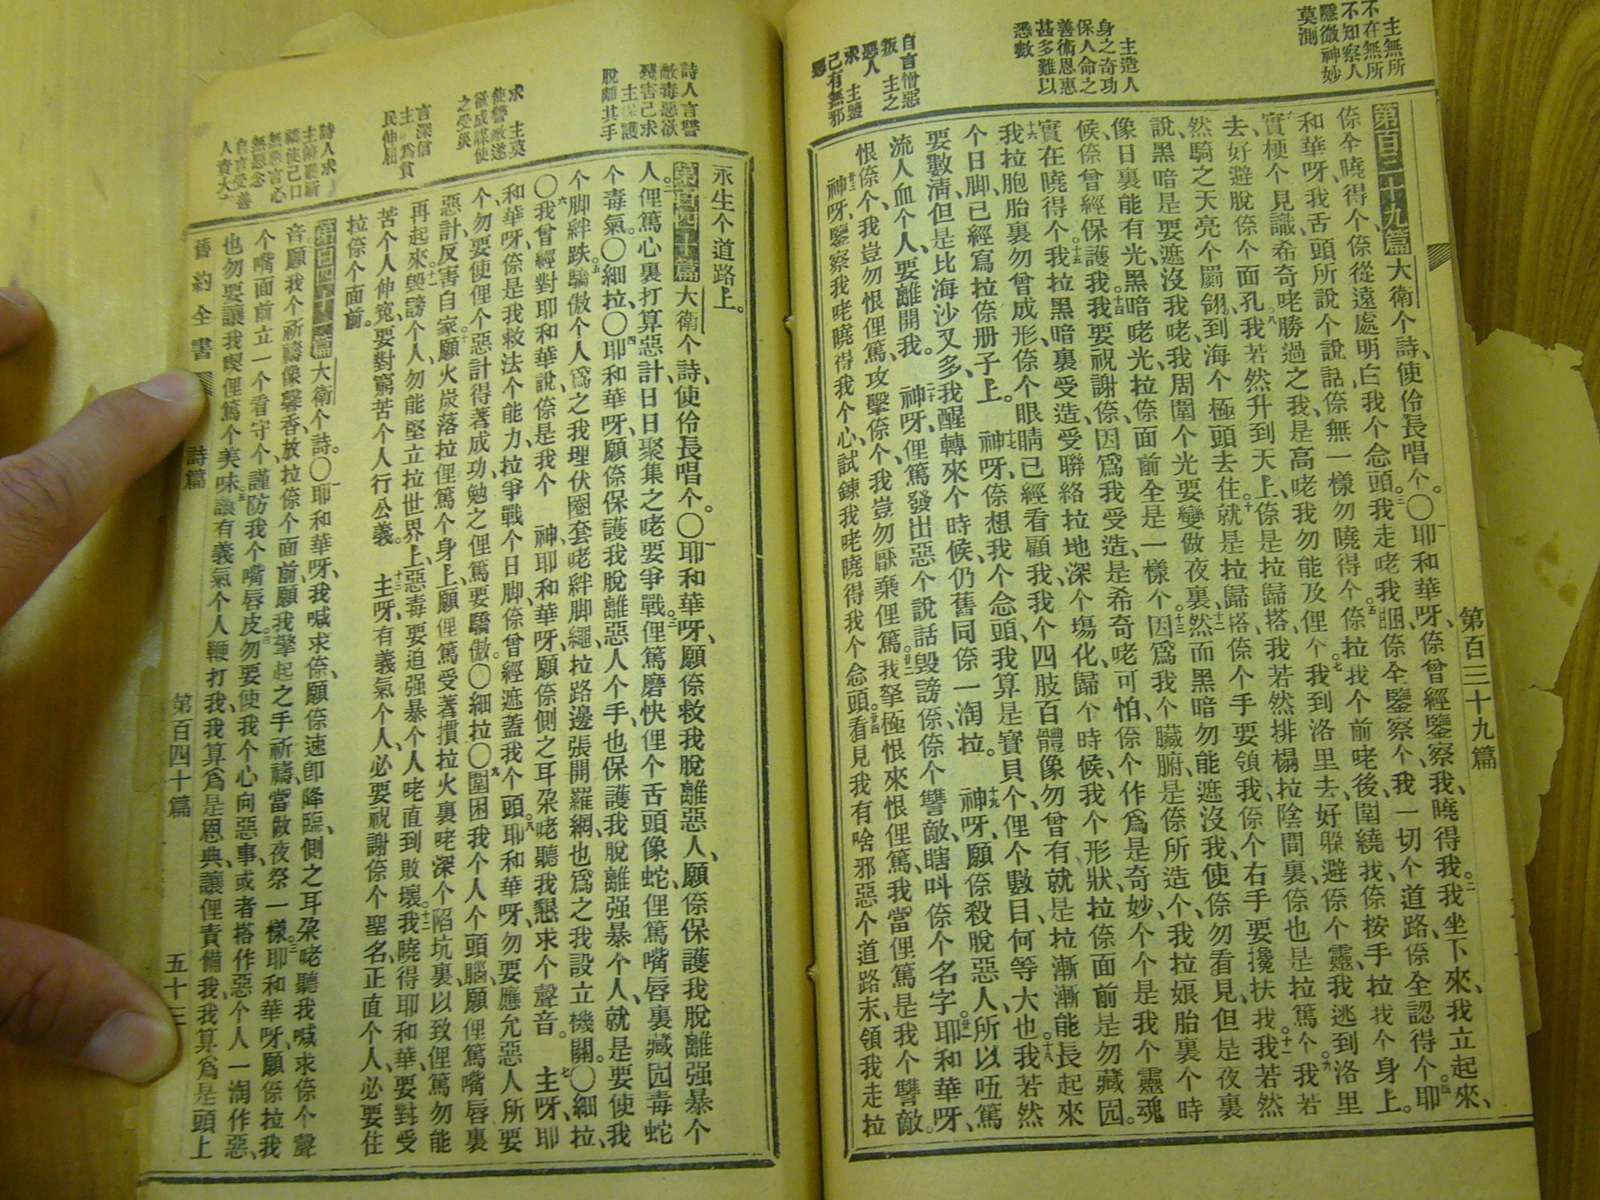 主無所
不在無所
不知察人
隱微神妙
莫測
主造人
身之奇功
保人命之
善術恩惠
甚多難以
悉數
自言憎惡
叛 主之
惡人
求 主鑒
己有無邪
第百三十九篇
第百三十九篇大衛个詩、使伶長唱个。〇耶和華呀、倷曾經鑒察我、曉得我。我坐下來、我立起來、
倷全曉得个、倷從遠處明白我个念頭。我走咾我㘝、倷全鑒察个、我一切个道路、倷全認得个。耶
和華呀、我舌頭所說个說話、倷無一樣勿曉得个。倷拉我个前咾後圍繞我、倷按手拉我个身上。
實梗个見識希奇咾勝過之我、是高咾我勿能及俚个。我到洛里去、好躲避倷个靈、我逃到洛里
去、好避脫倷个面孔。我若然升到天上、倷是拉歸搭、我若然排榻拉陰間裏、倷也是拉篤。我若
然騎之天亮个翩翎、到海个極頭去住、就是拉歸搭、倷个手要領我、倷个右手要攙扶我。我若然
說、黑暗是要遮沒我咾、我周圍个光要變做夜裏。然而黑暗勿能遮沒我、使倷勿看見、但是夜裏
像日裏能有光、黑暗咾光、拉倷面前全是一樣个。因爲我个臟腑、是倷所造个、我拉娘胎裏个時
候、倷曾經保護我。我要祝謝倷、因爲我受造、是希奇咾可怕、倷个作爲是奇妙个、个是我个靈魂
實在曉得个。我拉黑暗裏受造、受聯絡拉地深个塲化、歸个時候、我个形狀、拉倷面前是勿藏囥。
我拉胞胎裏勿曾成形、倷个眼睛已經看顧我、我个四肢百體、像勿曾有、就是拉漸漸能長起來
个日脚、已經寫拉倷册子上。 神呀、倷想我个念頭、我算是寳貝个、俚个數目、何等大也。我若然
要數清、但是比海沙又多、我醒轉來个時候、仍舊同倷一淘拉。 神呀、願倷殺脫惡人、所以㕶篤
流人血个人、要離開我。 神呀、俚篤發出惡个說話毀謗倷、倷个讐敵、瞎呌倷个名字。耶和華呀、
恨倷个、我豈勿恨俚篤、攻擊倷个、我豈勿厭棄俚篤。我拏極恨來恨俚篤、我當俚篤是我个讐敵。
神呀、鑒察我咾曉得我个心、試鍊我咾曉得我个念頭。看見我有啥邪惡个道路末、領我走拉
詩人言讐
敵毒惡欲
殘害己求
主保護
脫離其手
求 主莫
使讐敵遂
欲成謀使
之受災
言深信
主必爲貧
民伸屈
詩人求
主俯聽所
禱使己口
無惡言心
無惡念
自言受善
人責大
永生个道路上。
第百四十篇大衛个詩、使伶長唱个。〇耶和華呀、願倷救我脫離惡人、願倷保護我脫離强暴个
人。俚篤心裏打算惡計、日日聚集之咾要爭戰。俚篤磨快俚个舌頭像蛇、俚篤嘴唇裏藏囥毒蛇
个毒氣。〇細拉、〇耶和華呀、願倷保護我脫離惡人个手、也保護我脫離强暴个人、就是要使我
个脚絆跌。驕傲个人、爲之我埋伏圈套咾絆脚繩、拉路邊張開羅網、也爲之我設立機關。〇細拉、
〇我曾經對耶和華說、倷是我个 神、耶和華呀、願倷側之耳朶咾聽我懇求个聲音。 主呀、耶
和華呀、倷是我救法个能力、拉爭戰个日脚、倷曾經遮蓋我个頭。耶和華呀、勿要應允惡人所要
个、勿要使俚个惡計得著成功、勉之俚篤要驕傲。〇細拉、〇圍困我个人个頭腦、願俚篤嘴唇裏
惡計、反害自家。願火炭落拉俚篤个身上、願俚篤受著摜拉火裏咾深个陷坑裏、以致俚篤勿能
再起來。毀謗个人、勿能堅立拉世界上、惡毒要追强暴个人咾直到敗壞。我曉得耶和華、要對受
苦个人伸寃、要對窮苦个人行公義。 主呀、有義氣个人、必要祝謝倷个聖名、正直个人、必要住
拉倷个面前。
第百四十一篇大衛个詩。〇耶和華呀、我喊求倷、願倷速卽降臨、側之耳朶咾聽我喊求倷个聲
音。願我个祈禱像馨香、放拉倷个面前、願我拏起之手祈禱、當做夜祭一樣。耶和華呀、願倷拉我
个嘴面前立一个看守个、謹防我个嘴唇皮。勿要使我个心向惡事、或者搭作惡个人一淘作惡、
也勿要讓我喫俚篤个美味。讓有義氣个人鞭打我、我算爲是恩典、讓俚責備我、我算爲是頭上
舊約全書
詩篇
第百四十篇
五十三